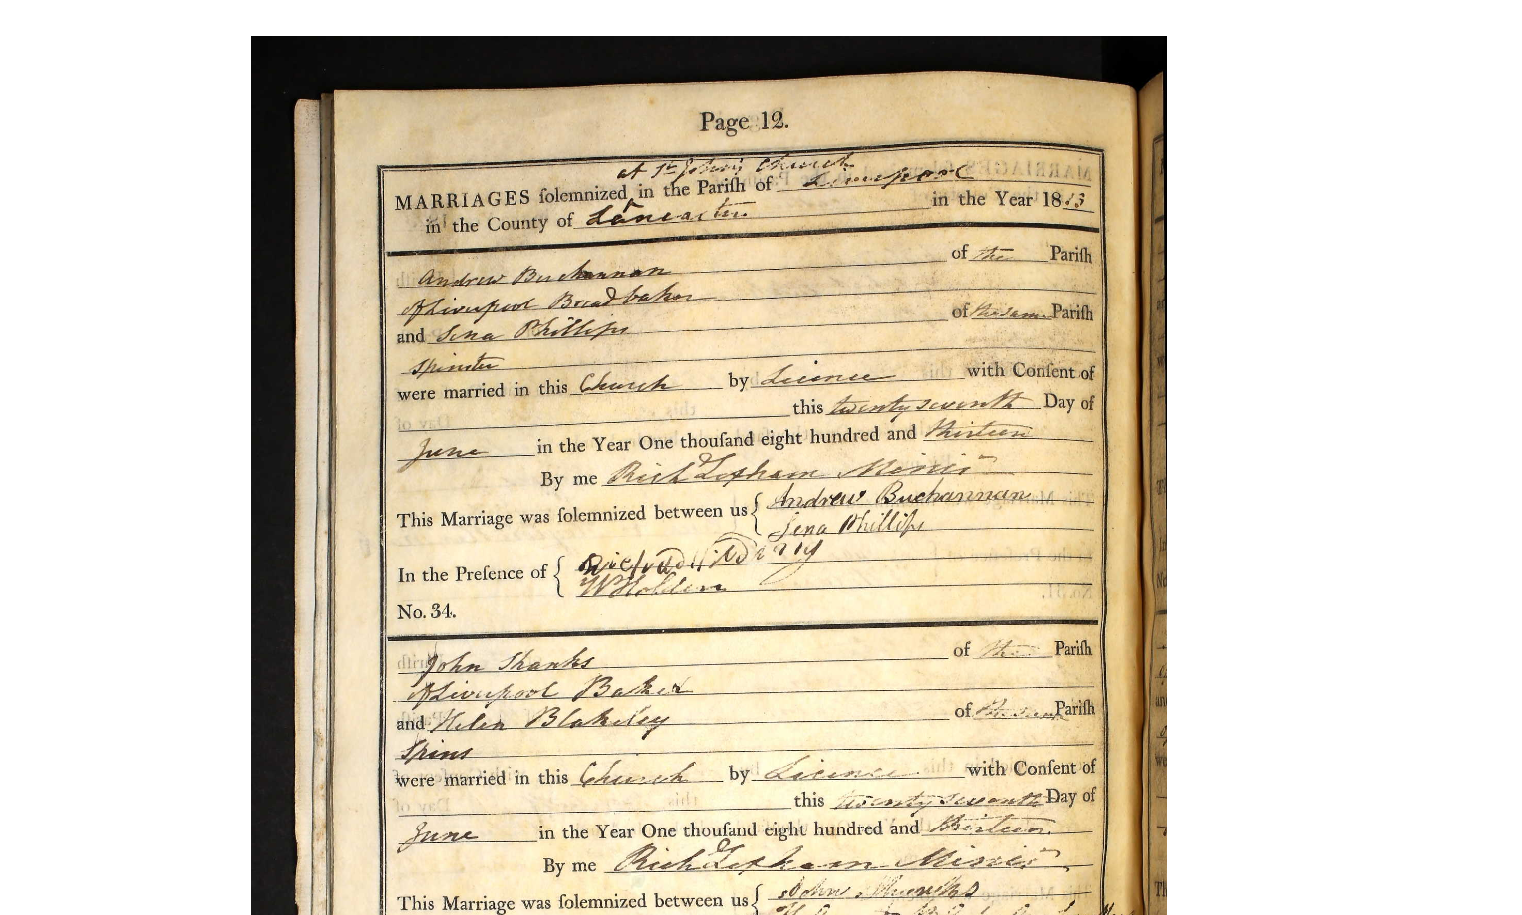 Page 12.
at St John's Church
MARRIAGES ſolemnized in the Pariſh of Liverpool
in the County of Lancaster in the Year 1813
Andrew Buchannan of the Pariſh
of Liverpool Breadbaker
and Sena Phillips of the same Pariſh
Spinster
were married in this Church by Licence with Conſent of
this twenty seventh Day of
June in the Year One thouſand eight hundred and thirteen
By me Richd Loxham Minir
This Marriage was ſolemnized between us { Andrew Buchannan
Sena Phillips
In the Preſence of {
W Holden
No. 34.
John Shanks of the Pariſh
of Liverpool Baker
and Helen Blakeley of the same Pariſh
Spins
were married in this Church by Licence with Conſent of
this twenty seventh Day of
June in the Year One thouſand eight hundred and thirteen
By me Richd Loxham Minir
This Marriage was ſolemnized between us { John Shanks